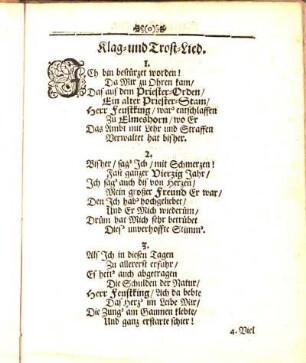 (o)
Klag- und Trost-Lied.
1.
Ich bin bestürzt worden!
Da Mir zu Ohren kam/
Daß auf dem Priester-Orden/
Ein alter Priester-Stam/
Herr Fenstking/ war entschlaffen
Zu Elmeshorn/ wo Er
Das Ambt mit Lehr und Straffen
Verwaltet hat bisher.
2.
Bisher/ sag' Ich/ mit Schmerzen!
Fast ganzer Vierzig Jahr/
Ich sag' auch diß von Herzen/
Mein großer Freund Er war/
Den Ich hab' hochgeliebet/
Und Er Mich wiederüm/
Drüm hat Mich sehr betrübet
Dies' unverhoffte Stimm'.
3.
Als' Ich in diesen Tagen
Zu allererst erfuhr/
Es hett' auch abgetragen
Die Schulden der Natur/
Herr Fenstking/ Ach da bebte
Das Herz' im Leibe Mir/
Die Zung' am Gaumen klebte/
Und ganz erstarte schier!
4. Viel